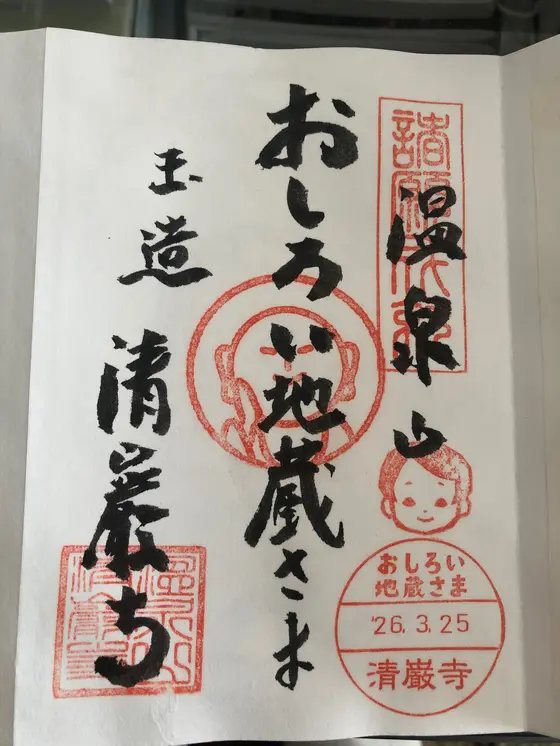 諸願成就
温泉山
おしろい地蔵さま
玉造
清巌寺
おしろい
地蔵さま
'26.3.25
清巌寺